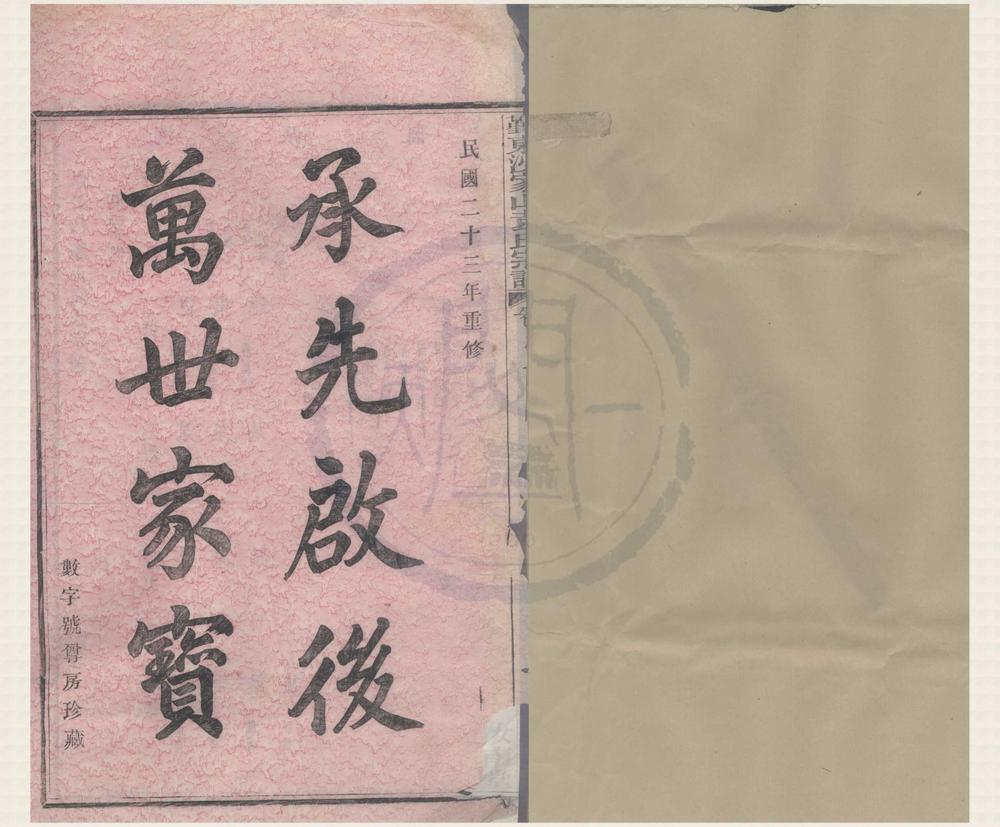 民國二十三年重修
承先啟後
萬世家寶
數字號尊房珍藏